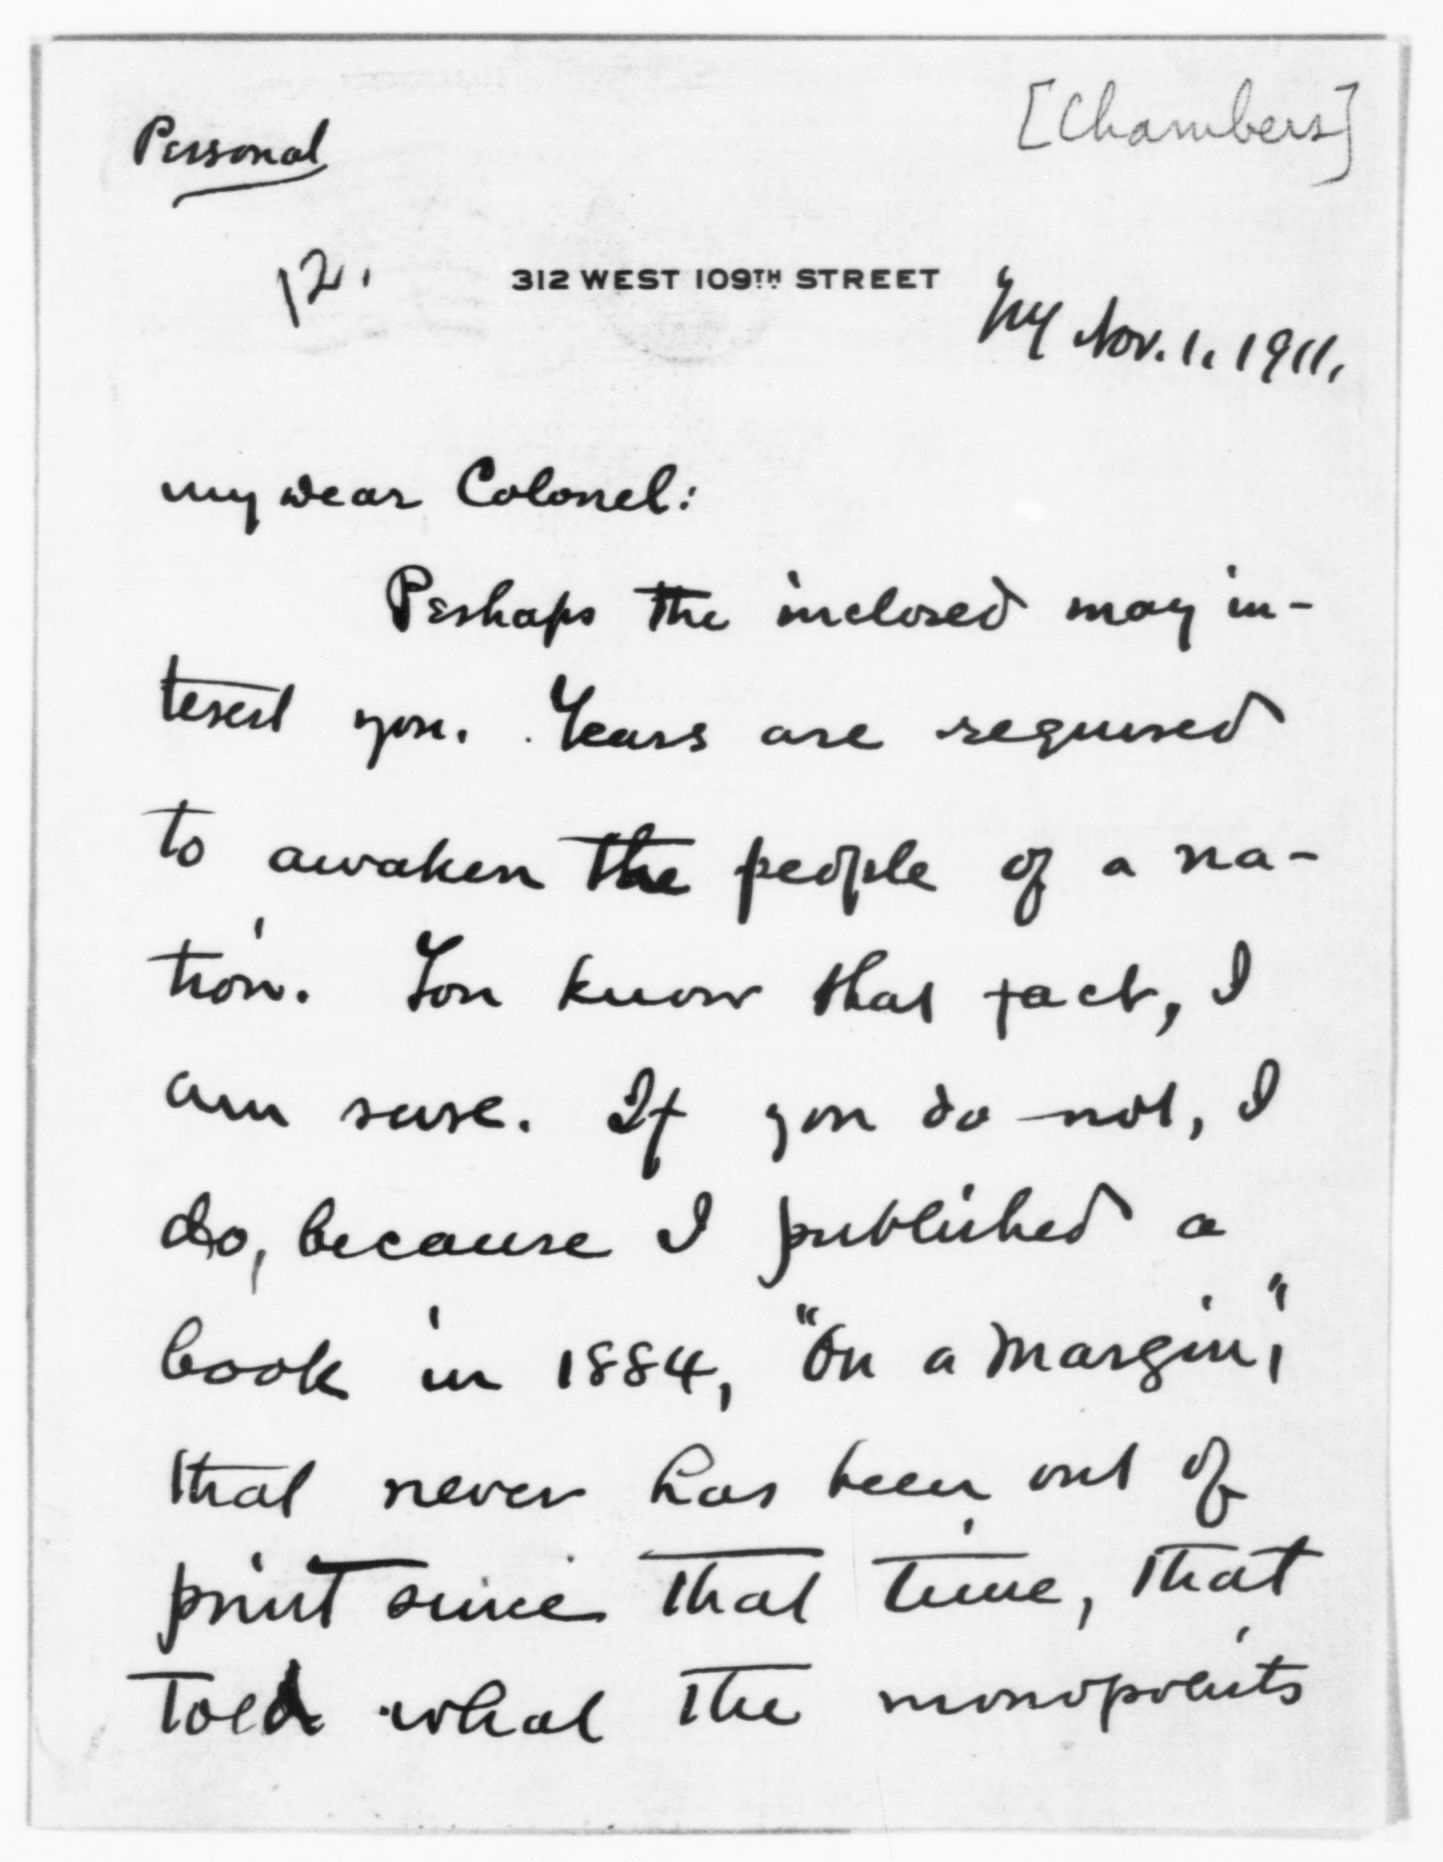 [Chambers]
Personal
12.
312 WEST 109TH STREET
NY Nov. 1. 1911.
My dear Colonel:
Perhaps the inclosed may in-
terest you. Years are required
to awaken the people of a na-
tion. You know that fact, I
am sure. If you do not, I
do, because I published a
book in 1884, "On a Margin,"
that never has been out of
print since that time, that
told what the monopolists